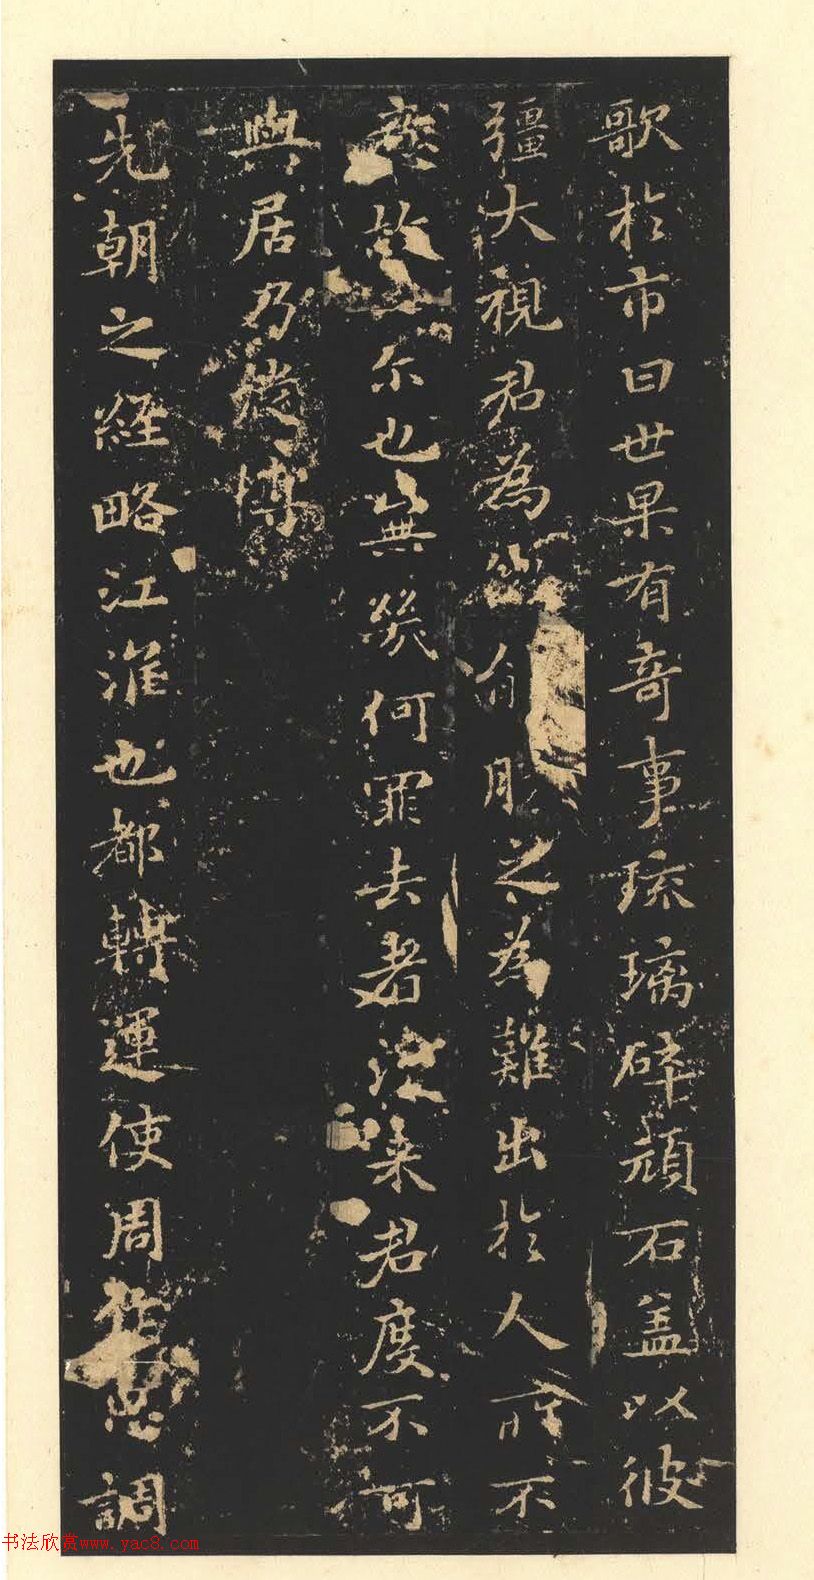 歌於市曰世果有奇事琉璃碎頑石盖以彼
彊大視君為肎服之為難出於人所不
應故尔也無幾何罪去者沒柔君度不可
與居乃從博
先朝之經略江淮也都轉運使周調
书法欣赏www.yac8.com